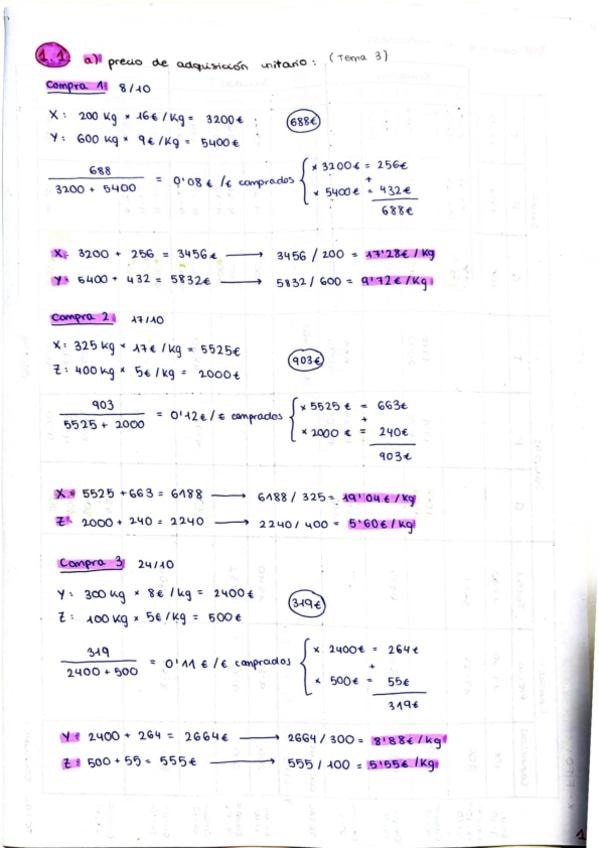 1.1. a) precio de adquisición unitario: (Tema 3)
Compra 1: 8/10
X: 200 kg × 16€/kg = 3200€
688€
Y: 600 kg × 9€/kg = 5400€
688 / 3200 + 5400 = 0'08€/€ comprados { × 3200€ = 256€
+
× 5400€ = 432€
688€
X: 3200 + 256 = 3456€ → 3456/200 = 17'28€/kg
Y: 5400 + 432 = 5832€ → 5832/600 = 9'72€/kg
Compra 2: 17/10
X: 325 kg × 17€/kg = 5525€
903€
Z: 400 kg × 5€/kg = 2000€
903 / 5525 + 2000 = 0'12€/€ comprados { × 5525€ = 663€
+
× 2000€ = 240€
903€
X: 5525 + 663 = 6188 → 6188/325 = 19'04€/kg
Z: 2000 + 240 = 2240 → 2240/400 = 5'60€/kg
Compra 3 24/10
Y: 300 kg × 8€/kg = 2400€
319€
Z: 100 kg × 5€/kg = 500€
319 / 2400 + 500 = 0'11€/€ comprados { × 2400€ = 264€
+
× 500€ = 55€
319€
Y: 2400 + 264 = 2664€ → 2664/300 = 8'88€/kg
Z: 500 + 55 = 555€ → 555/100 = 5'55€/kg
1